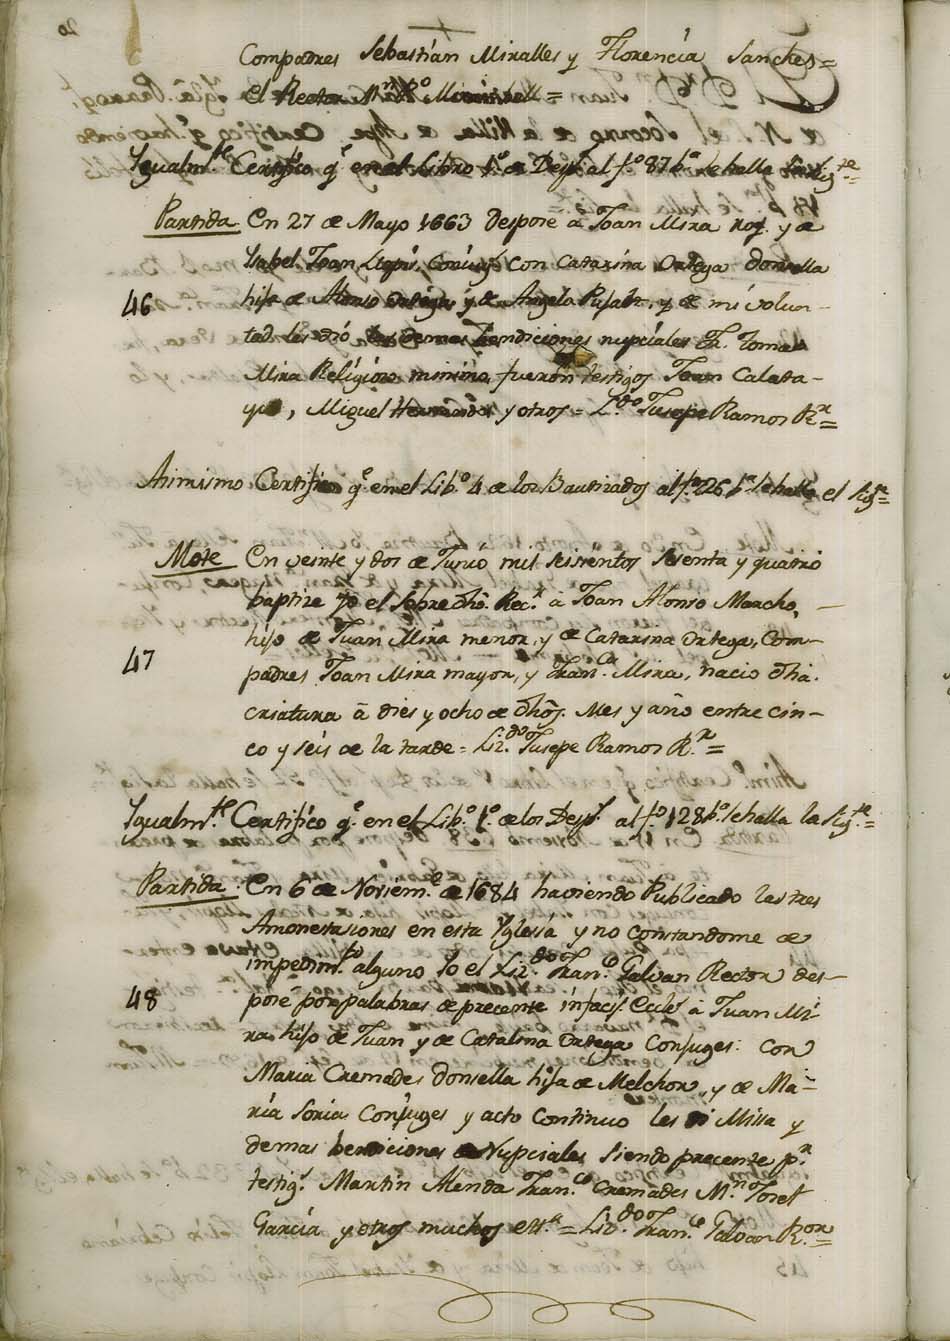 Compadres Sebastían Miralles y Florencía Sanches=
el Rector Mn. Miralles=
Igualm.te Certifico q.e en el Libro 1.o de Desp.s al f.o 87 b.ta se halla la sig.te=
Partida En 27 de Mayo 1663 despose â Joan Mira Noy. y de
Ysabel Joan Llopis, Conjuges con Catarina Ortega donsella
46 hija de Alonso Ortega, y de Angela Pujalt, y de mi volun-
tad les dió las demas bendiciones nupciales Fr. Tomas
Mira Religioso minimo, fueron testigos Joan Calata-
yud, Miguel Hernandes, y otros= L.do Jusepe Ramos R.r=
Asimismo Certifico q.e en el Lib.o 4 de los Bautizados al f.o 226 b.ta se halla el sig.te=
Mote En veinte y dos de Junio mil seissentos sesenta y quatro
baptize Yo el sobredho. Rec.r â Joan Alonso Marcho, -
hijo de Juan Mira menor, y de Catarina Ortega, Com-
47 padres Joan Mira mayor, y Fran.ca Mira, nacio dha.
criatura â dies y ocho de dhos. Mes y año entre cin-
co y seis de la tarde= Liz.do Jusepe Ramos R.r=
Ygualm.te Certifico q.e en el Lib.o 1.o de los Desp.s al f.o 128 b.ta se halla la sig.te=
Partida En 6 de Noviem.e de 1684 haviendo Publicado las tres
Amonestasiones en esta Yglesía y no constandome de
impedim.to alguno Yo el Liz.do Fran.co Galvan Rector des-
48 posé por palabras de precente infacie Eccle. â Juan Mi-
ra hijo de Juan y de Catalina Ortega Conjuges: con
Maria Cremades donsella hija de Melchor, y de Ma-
ría Soria Conjuges y acto continuo les di Missa y
demas bendiciones Nupciales siendo precente p.r
testig.s Martin Alenda Fran.co Cremades M.n Josef
García y otros muchos ett.a= Liz.do Fran.co Galvan R.or=